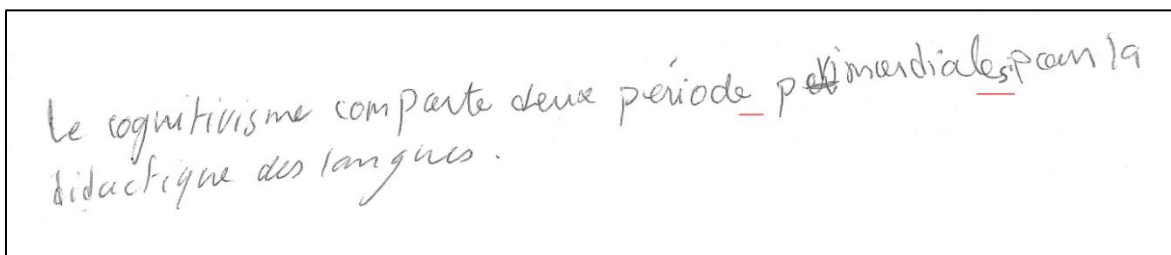 Le cognitivisme comporte deux période primordiales, pour la
didactique des langues.